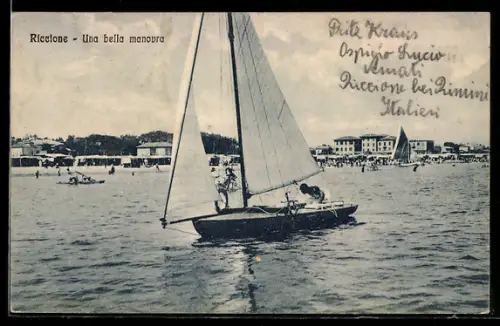 Riccione - Una bella manovra
Fritz Kraus
Ospizio Lucio
Amati
Riccione bei Rimini
Italien